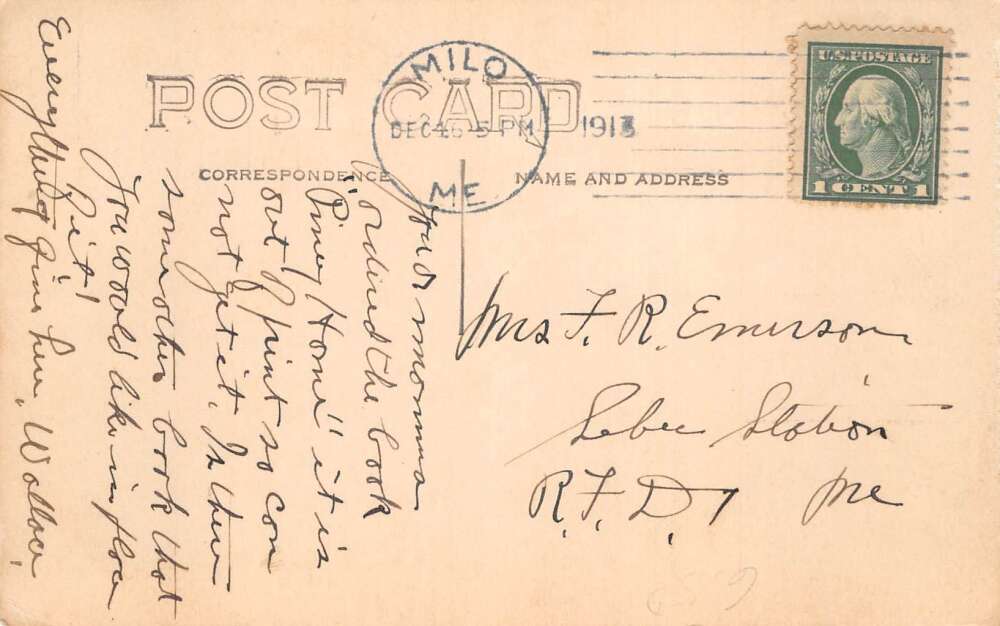 POST CARD
MILO
DEC 16 5 PM 1913
ME
U.S. POSTAGE
1 CENT 1
CORRESPONDENCE
NAME AND ADDRESS
Dear Momma
ordired the book
"Piney Home" it is
out Print so con
not get it. Is there
some other book that
you would like in place
of it!
Everything fine here, Wallace.
Mrs F. R. Emerson
Sebec Station
R. F. D. 1 Me